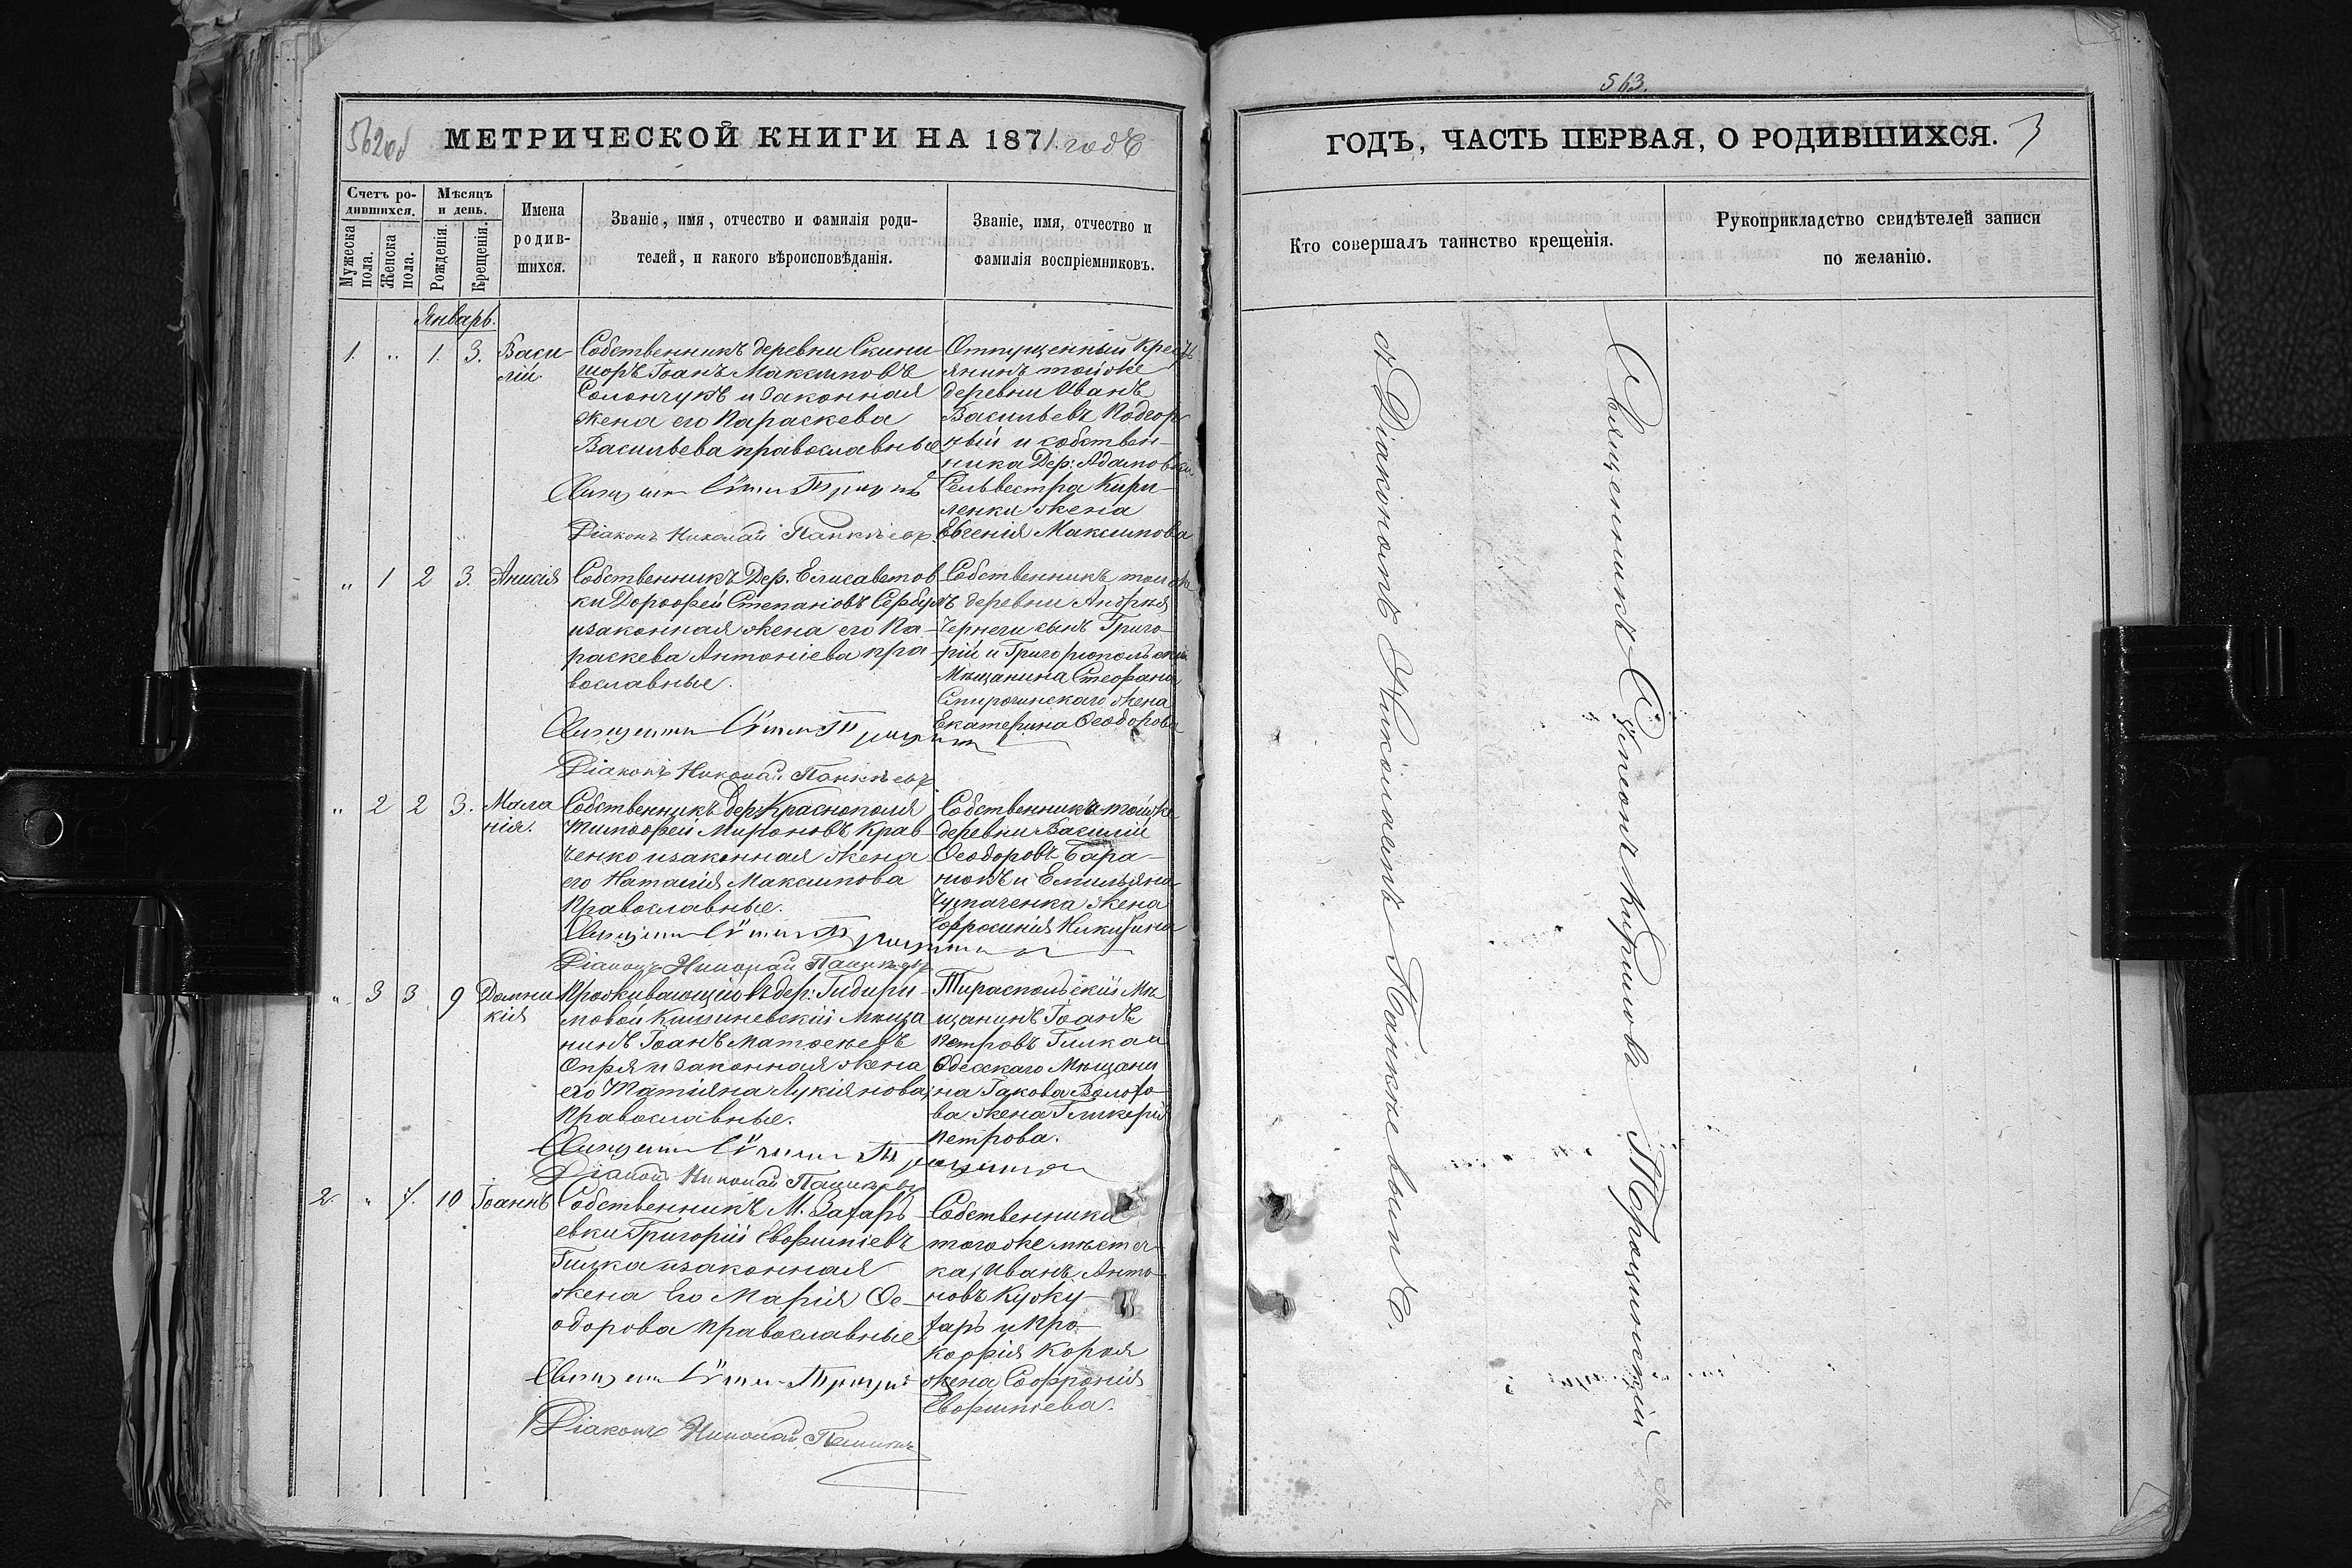 562об
МЕТРИЧЕСКОЙ КНИГИ НА 1871. годъ
Счетъ ро-
дившихся.
Мѣсяцъ
и день.
Мужеска
пола.
Женска
пола.
Рожденія.
Крещенія.
Имена
родив-
шихся.
Званіе, имя, отчество и фамилія роди-
телей, и какого вѣроисповѣданія.
Званіе, имя, отчество и
фамилія воспріемниковъ.
Январь.
1. " 1. 3. Васи-
лій.
Собственникъ деревни
Іоанъ Максимовъ
Солончукъ и законная
жена его Параскева
Васильева православные
Діаконъ Николай
Отпущенный крест
янинъ тойже
деревни Иванъ
Васильевъ Подгор
ный и собствен-
ника Дер: Адамовки
Сельвестра Кири-
ленки жена
Евгенія Максимова
" 1 2 3. Анисія
Собственникъ Дер. Елисаветов
ки Дорофей Степановъ
и законная жена его Па-
раскева Антоніева пра-
вославные.
Діаконъ Николай
Собственникъ тойже
деревни Андрея
Чернеги сынъ Григо-
рій и Григоріопольскаго
Мѣщанина Стефана
жена
Екатерина Ѳеодорова
" 2 2 3. Мала
нія.
Собственникъ дер. Краснополя
Тимофей Мироновъ Крав
ченко и законная жена
его Наталія Максимова
Православные.
Діаконъ Николай
Собственникъ тойже
деревни Василій
Ѳеодоровъ Бара-
нюкъ и Емильяна
жена
Ефросинія Никитина
" 3 3 9 Домни
кія
Проживающій въ дер: Гидири-
мовой Кишиневскій Мѣща
нинъ Іоанъ Матѳеевъ
Опря и законная жена
его Татіяна Лукіянова
Православные.
Діаконъ Николай
Тираспольскій Мѣ
щанинъ Іоанъ
Петровъ Гилка и
Одесскаго Мѣщани
на Іакова
ва жена Гликерія
Петрова.
2. " 7. 10 Іоаннъ
Собственникъ М. Захарь
евки Григорій Евфиміевъ
Гилка и законная
жена Его Марія Ѳе-
одорова православные
Діаконъ Николай
Собственники
тогоже мѣстеч-
ка, Иванъ Анто-
новъ Кужу-
харь и Про-
кофія Корня
жена Софронія
Евфиміева.
563.
ГОДЪ, ЧАСТЬ ПЕРВАЯ, О РОДИВШИХСЯ.
3
Кто совершалъ таинство крещенія.
Рукоприкладство свидѣтелей записи
по желанію.
Священникъ Сѵмеонъ Кириловъ Троцинскій
съ Діакономъ Николаемъ Панкѣевымъ.